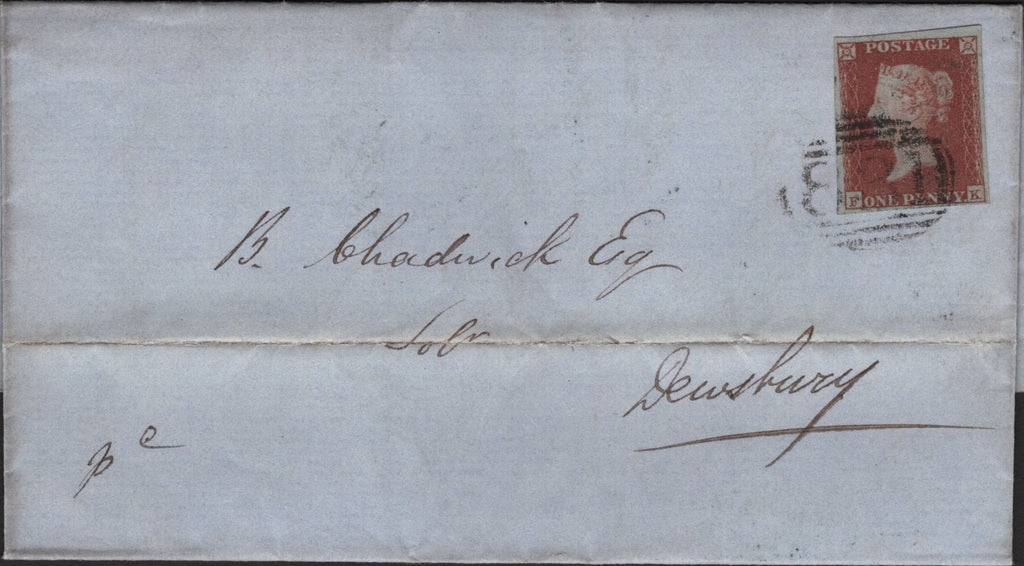 POSTAGE
F ONE PENNY K
B. Chadwick Esq
Solr
Dewsbury
pc